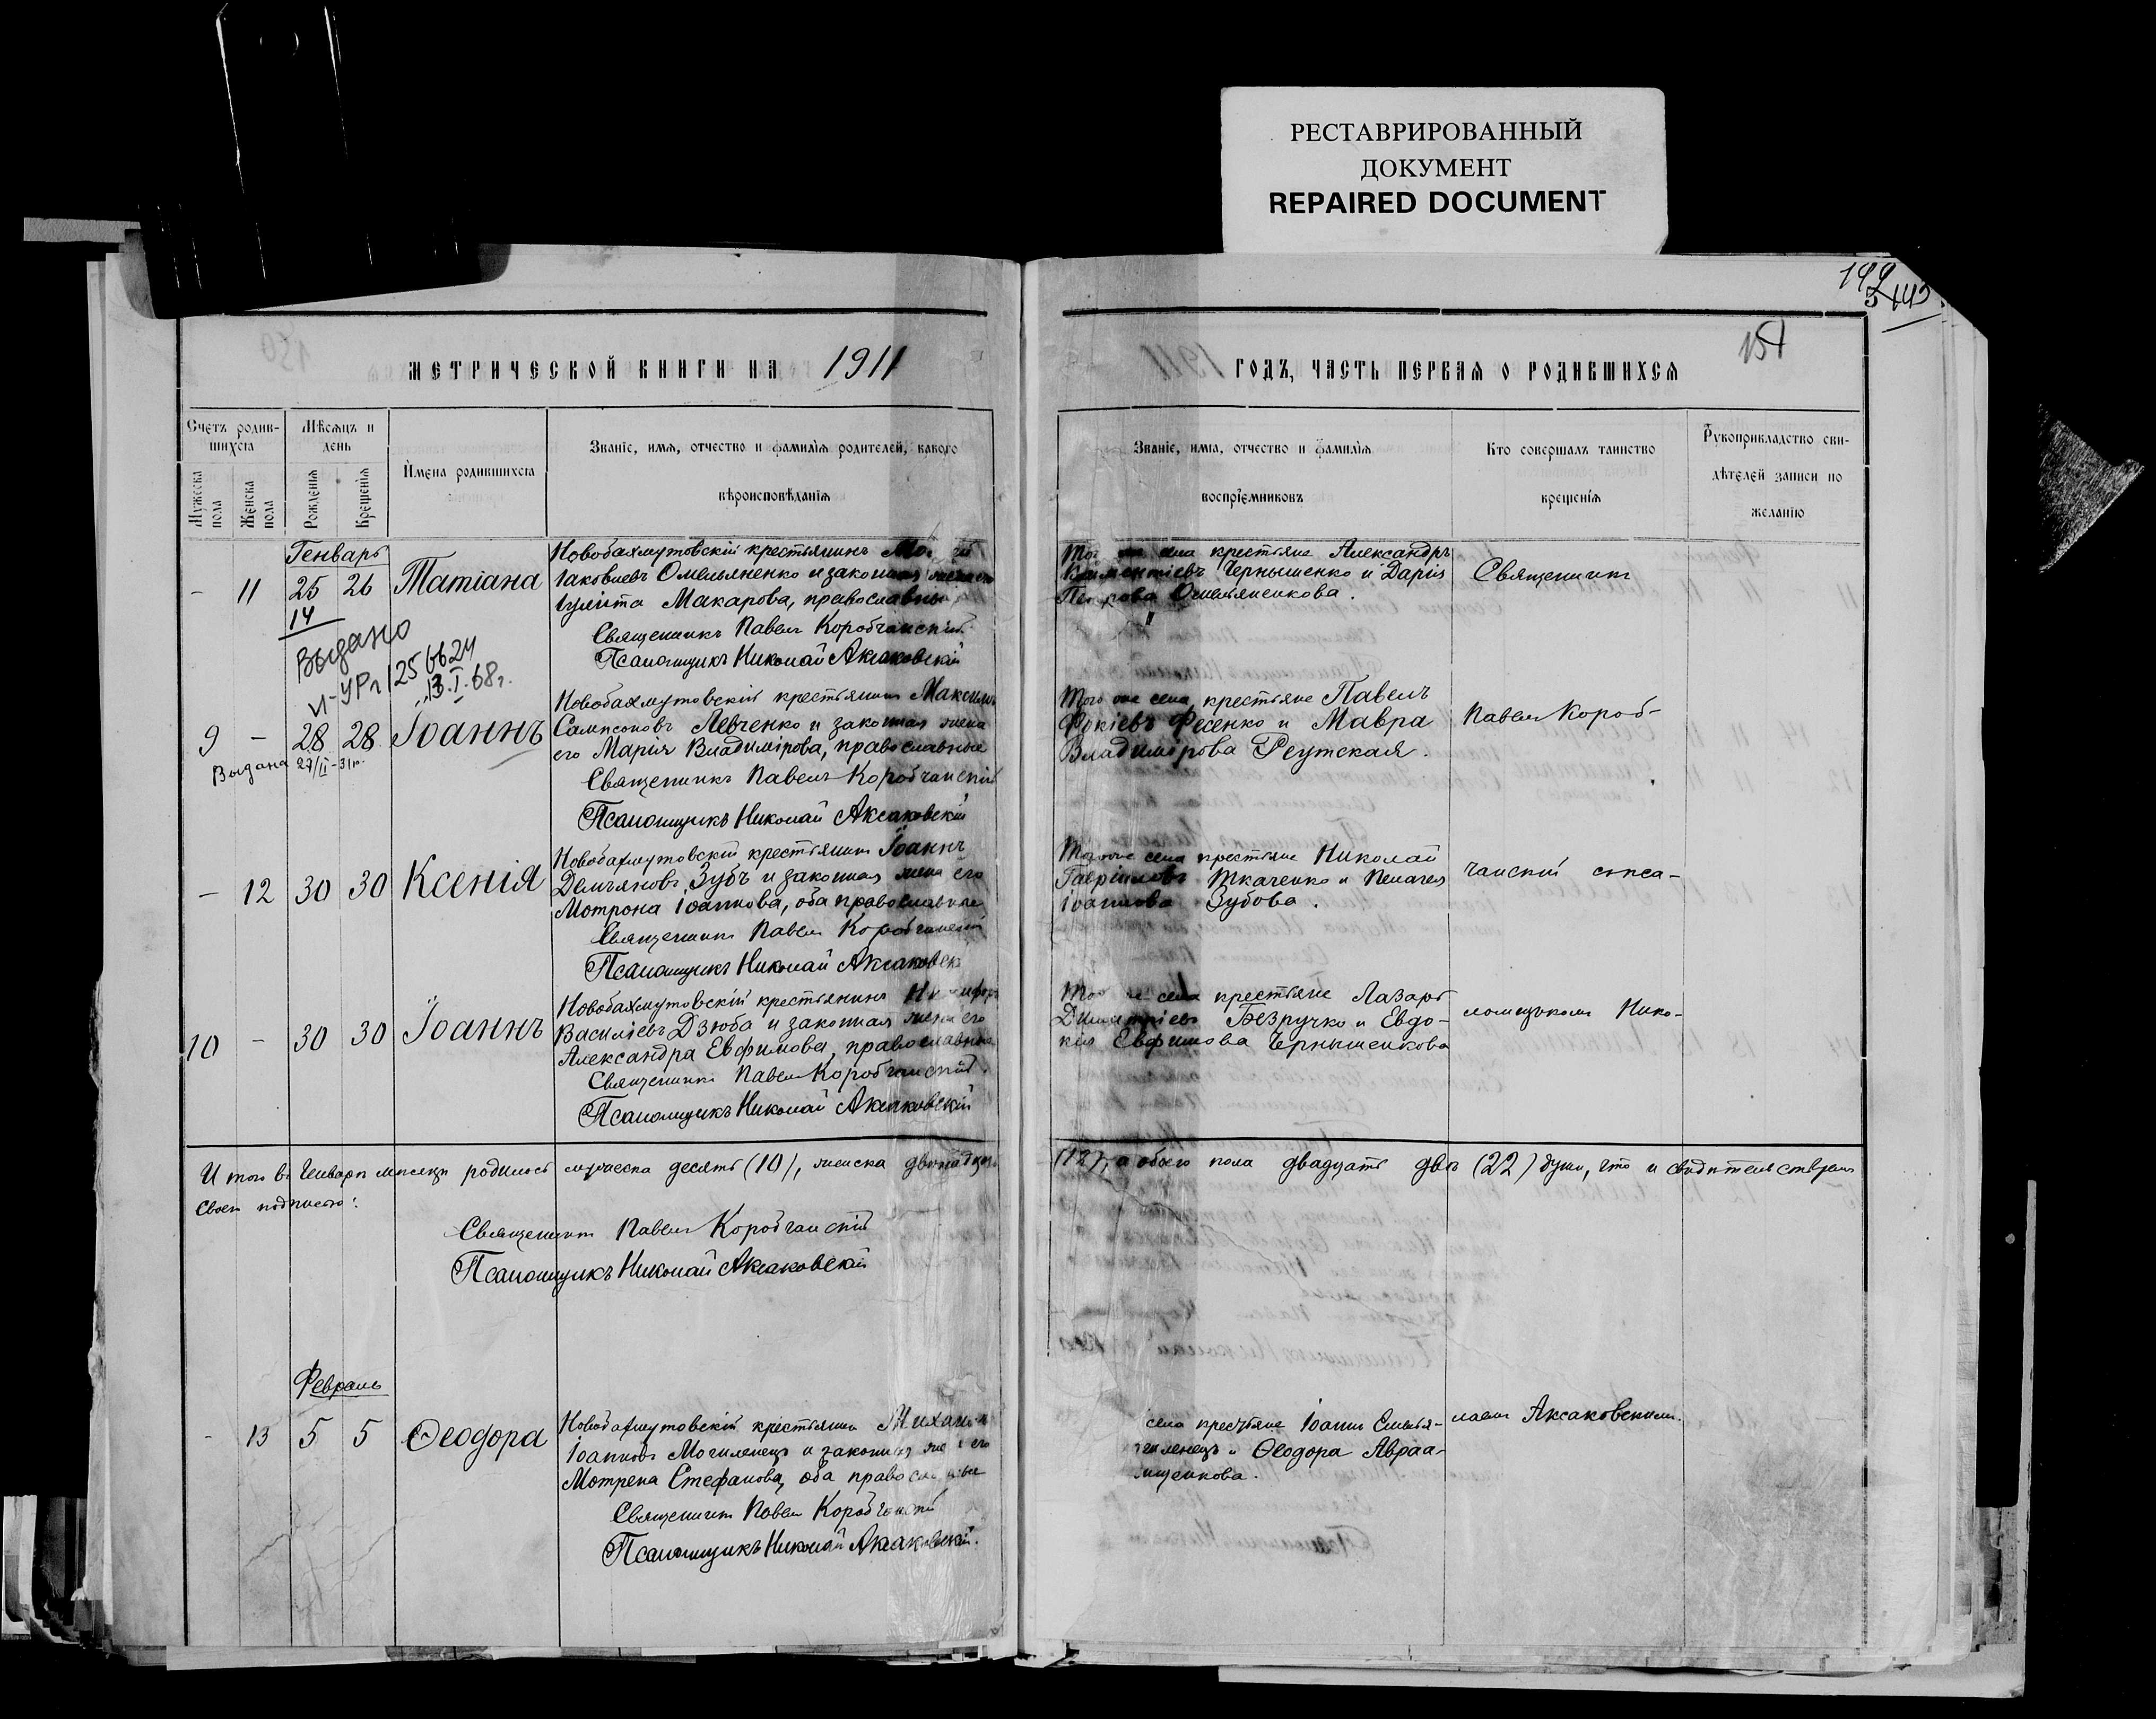 РЕСТАВРИРОВАННЫЙ
ДОКУМЕНТ
REPAIRED DOCUMENT
151
МЕТРИЧЕСКОЙ КНИГИ НА 1911
ГОДЪ, ЧАСТЬ ПЕРВАЯ О РОДИВШИХСЯ
Счетъ родив-
шихся
Мужеска пола
Женска пола
Мѣсяцъ и
день
Рожденія
Крещенія
Имена родившихся
Званіе, имя, отчество и фамилія родителей, какого
вѣроисповѣданія
Званіе, имя, отчество и фамилія
воспріемниковъ
Кто совершалъ таинство
крещенія
Рукоприкладство сви-
дѣтелей записи по
желанію
Генварь
- 11 25 26 Татіана
14
Выдано
13.I.68г.
Новобахмутовскій крестьянинъ
Іаковлевъ Омельяненко и законная жена его
Іулита Макарова, православные
Священникъ Павелъ Коробчанскій
Псаломщикъ Николай Аксаковскій
Того же села крестьяне Александръ
Чернышенко и Дарія
Петрова Омельяненкова.
Священникъ
9 - 28 28 Іоаннъ
Выдана 27/II-31г.
Новобахмутовскій крестьянинъ Максимъ
Сампсоновъ Левченко и законная жена
его Марія Владимірова, православные
Священникъ Павелъ Коробчанскій
Псаломщикъ Николай Аксаковскій
Того же села крестьяне Павелъ
Фокіевъ Фесенко и Мавра
Владимірова Реутская.
Павелъ Короб-
- 12 30 30 Ксенія
Новобахмутовскій крестьянинъ Іоаннъ
Демьяновъ Зубъ и законная жена его
Мотрона Іоаннова, оба православные
Священникъ Павелъ Коробчанскій
Псаломщикъ Николай Аксаковск
Того же села крестьяне Николай
Гавріиловъ Ткаченко и Пелагея
Іоаннова Зубова.
чанскій съ пса-
10 - 30 30 Іоаннъ
Новобахмутовскій крестьянинъ
Василіевъ Дзюба и законная жена его
Александра Евфимова, православные
Священникъ Павелъ Коробчанскій.
Псаломщикъ Николай Аксаковскій
Того же села крестьяне Лазарь
Димитріевъ Безручко и Евдо-
кія Евфимова Чернышенкова
ломщикомъ Нико-
Итого въ Генварѣ мѣсяцѣ родилось мужеска десять (10), женска двенадцать
(12), а обоего пола двадцать двѣ (22) души, что и свидѣтельствуемъ
своею подписью:
Священникъ Павелъ Коробчанскій
Псаломщикъ Николай Аксаковскій
Февраль
- 13 5 5 Ѳеодора
Новобахмутовскій крестьянинъ Михаилъ
Іоанновъ Могиленецъ и законная жена его
Мотрена Стефанова, оба православные
Священникъ Павелъ Коробчанскій
Псаломщикъ Николай Аксаковскій.
села крестьяне Іоаннъ Емелья-
гиленецъ и Ѳеодора Авраа-
мщенкова.
лаемъ Аксаковскимъ.